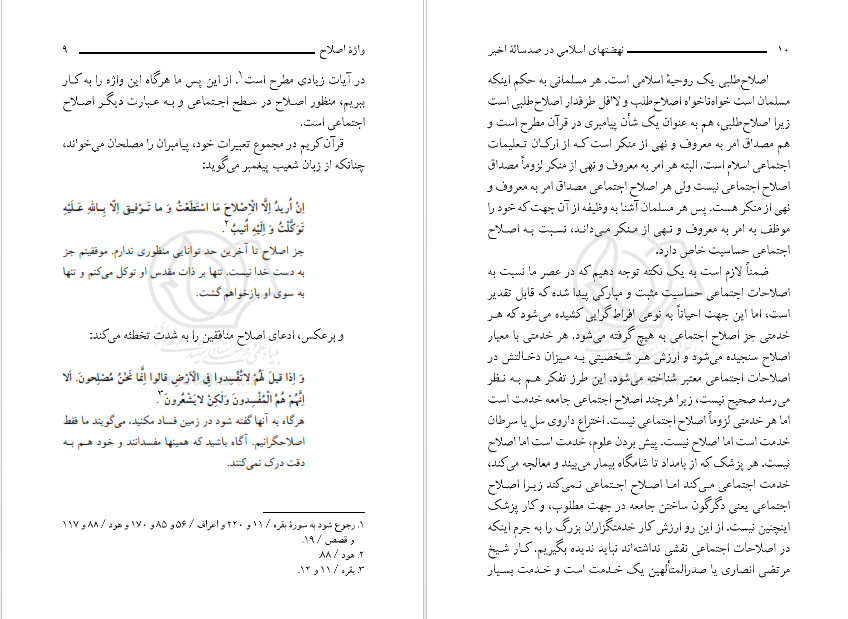 واژهٔ اصلاح ۹
در آیات زیادی مطرح است۱. از این پس ما هرگاه این واژه را به کار
ببریم، منظور اصلاح در سطح اجتماعی و به عبارت دیگر اصلاح
اجتماعی است.
قرآن کریم در مجموع تعبیرات خود، پیامبران را مصلحان می‌خواند،
چنانکه از زبان شعیب پیغمبر می‌گوید:
اِنْ اُریدُ اِلَّا الْاِصْلاحَ مَا اسْتَطَعْتُ وَ ما تَوْفیقی اِلّا بِاللهِ عَلَیْهِ
تَوَکَّلْتُ وَ اِلَیْهِ اُنیبُ۲.
جز اصلاح تا آخرین حد توانایی منظوری ندارم. موفقیتم جز
به دست خدا نیست. تنها بر ذات مقدس او توکل می‌کنم و تنها
به سوی او بازخواهم گشت.
و برعکس، ادعای اصلاح منافقین را به شدت تخطئه می‌کند:
وَ اِذا قیلَ لَهُمْ لاتُفْسِدوا فِی الْاَرْضِ قالوا اِنَّما نَحْنُ مُصْلِحونَ. اَلا
اِنَّهُمْ هُمُ الْمُفْسِدونَ وَلکِنْ لایَشْعُرونَ۳.
هرگاه به آنها گفته شود در زمین فساد مکنید، می‌گویند ما فقط
اصلاحگرانیم. آگاه باشید که همینها مفسدانند و خود هم به
دقت درک نمی‌کنند.
۱. رجوع شود به سورهٔ بقره / ۱۱ و ۲۲۰ و اعراف / ۵۶ و ۸۵ و ۱۷۰ و هود / ۸۸ و ۱۱۷
و قصص / ۱۹.
۲. هود / ۸۸
۳. بقره / ۱۱ و ۱۲.
۱۰ نهضتهای اسلامی در صدسالهٔ اخیر
اصلاح‌طلبی یک روحیهٔ اسلامی است. هر مسلمانی به حکم اینکه
مسلمان است خواه‌ناخواه اصلاح‌طلب و لااقل طرفدار اصلاح‌طلبی است
زیرا اصلاح‌طلبی، هم به عنوان یک شأن پیامبری در قرآن مطرح است و
هم مصداق امر به معروف و نهی از منکر است که از ارکان تعلیمات
اجتماعی اسلام است. البته هر امر به معروف و نهی از منکر لزوماً مصداق
اصلاح اجتماعی نیست ولی هر اصلاح اجتماعی مصداق امر به معروف و
نهی از منکر هست. پس هر مسلمان آشنا به وظیفه از آن جهت که خود را
موظف به امر به معروف و نهی از منکر می‌داند، نسبت به اصلاح
اجتماعی حساسیت خاص دارد.
ضمناً لازم است به یک نکته توجه دهیم که در عصر ما نسبت به
اصلاحات اجتماعی حساسیت مثبت و مبارکی پیدا شده که قابل تقدیر
است، اما این جهت احیاناً به نوعی افراط‌گرایی کشیده می‌شود که هر
خدمتی جز اصلاح اجتماعی به هیچ گرفته می‌شود. هر خدمتی با معیار
اصلاح سنجیده می‌شود و ارزش هر شخصیتی به میزان دخالتش در
اصلاحات اجتماعی معتبر شناخته می‌شود. این طرز تفکر هم به نظر
می‌رسد صحیح نیست، زیرا هرچند اصلاح اجتماعی جامعه خدمت است
اما هر خدمتی لزوماً اصلاح اجتماعی نیست. اختراع داروی سل یا سرطان
خدمت است اما اصلاح نیست. پیش بردن علوم، خدمت است اما اصلاح
نیست. هر پزشک که از بامداد تا شامگاه بیمار می‌بیند و معالجه می‌کند،
خدمت اجتماعی می‌کند اما اصلاح اجتماعی نمی‌کند زیرا اصلاح
اجتماعی یعنی دگرگون ساختن جامعه در جهت مطلوب، و کار پزشک
اینچنین نیست. از این رو ارزش کار خدمتگزاران بزرگ را به جرم اینکه
در اصلاحات اجتماعی نقشی نداشته‌اند نباید ندیده بگیریم. کار شیخ
مرتضی انصاری یا صدرالمتألهین یک خدمت است و خدمت بسیار